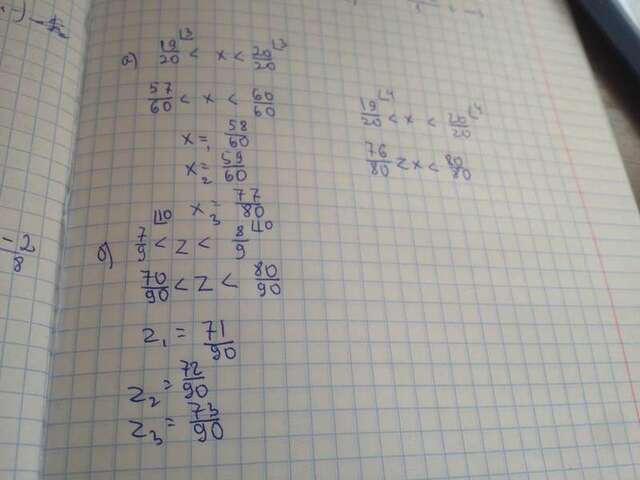 а) 19/20 ⌊3 < x < 20/20 ⌊3
57/60 < x < 60/60
x₁ = 58/60
x₂ = 59/60
x₃ = 77/80
19/20 ⌊4 < x < 20/20 ⌊4
76/80 < x < 80/80
б) 7/9 ⌊10 < z < 8/9 ⌊10
70/90 < z < 80/90
z₁ = 71/90
z₂ = 72/90
z₃ = 73/90
-2
8